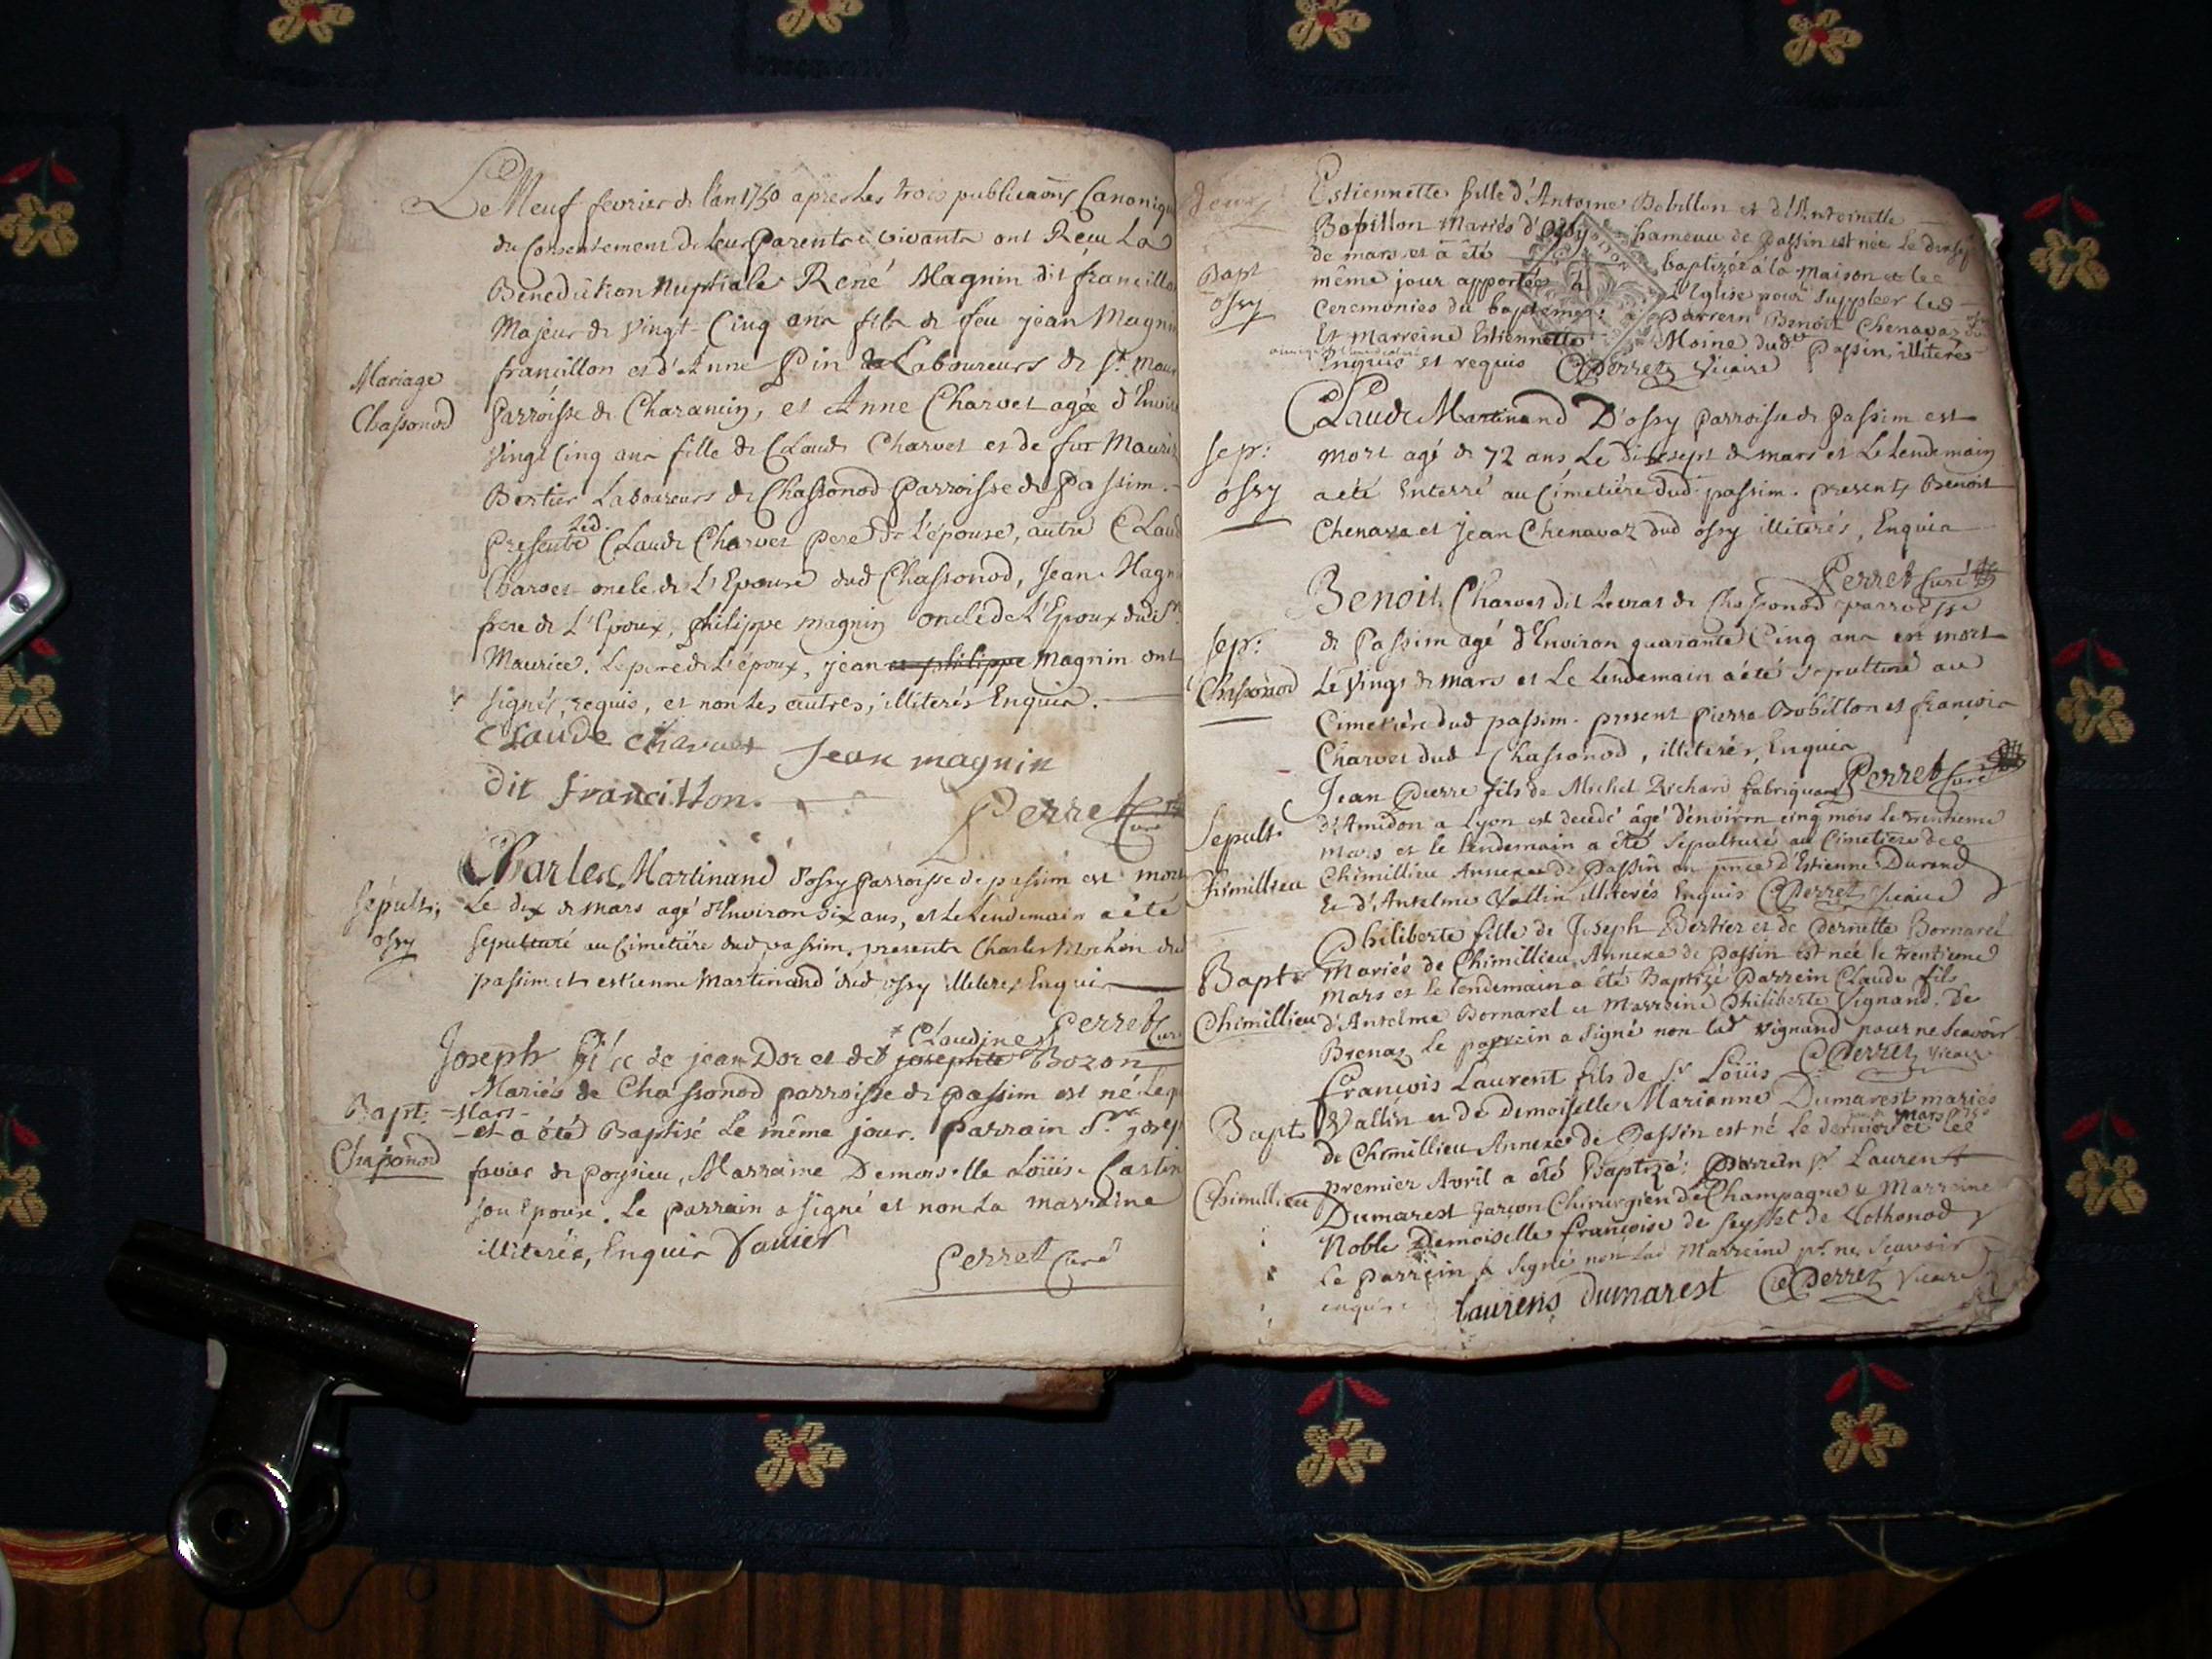 Le Neuf fevrier de l'an 1750 apres les trois publicaons Canoniqu
du Consentement de leur Parents vivants ont Reçu La
Benediction Nuptiale René Magnin dit francillo
Majeur de Vingt-Cinq ans fils de feu jean Magnin
francillon et d'Anne Pin Laboureurs de St. Maur
Mariage
Chassonod
Parroisse de Charancin, et Anne Charvet agée d'Envir
Vingt Cinq ans fille de Claude Charvet et de fue Mauris
Bertier Laboureurs de Chassonod Parroisse de Passim.
Presents led. Claude Charvet Pere de L'épouse, autre Claud
Charvet oncle de L'Epouse dud Chassonod, Jean Magn
frere de L'Epoux, philippe magnin oncle de L'Epoux dudi St.
Maurice. Le pere de L'épouse, jean et philippe Magnin ont
signés, requis, et non les autres, illiterés Enquis.
Claude charvet Jean magnin
dit francillon.
Perret Curé
Charles Martinand d'ossy Parroisse de passim est mort
Sépult:
ossy
Le dix de Mars agé d'Environ six ans, et Le Lendemain a été
sepulturé au Cimetiére dud passim. presents Charles Mochon du
passim et estienne Martinand dud ossy illiterés Enquis
Perret Curé
Claudine
Joseph fils de jean Dor et de josephte Bozon
Mariés de Chassonod parroisse de Passim est né Le
Bapt:
Chassonod
Mars
et a été Baptisé Le même jour. Parrain Sr. josep
favier de Poysieu, Marraine Demoiselle Loüise Castin
son Epouse. Le parrain a signé et non La marraine
illiterée, Enquis favier
Perret Curé
Estiennette fille d'Antoine Bobillon et d'Antoinette
Bobillon Mariés d'Ossy hameau de Passin est née le dixsept
de mars et a été baptizée à la Maison et le
Bapt
ossy
même jour apportée à L'Eglise pour suppléer les
Ceremonies du baptême: Parrein Benoit Chenavaz
Et Marreine Estiennette Moine dudt Passin, illiterés
Enquis et requis Perret Vicaire
Claude Martinand D'ossy Parroisse de Passim est
sep:
ossy
mort agé de 72 ans Le Dixsept de mars et Le Lendemain
a été Enterré au Cimetiére dud. passim. presents Benoit
Chenava et Jean Chenavaz dud ossy illiterés, Enquis
Perret Curé
Benoit Charvet dit Levrat de Chassonod parroisse
sep:
Chassonod
de Passim agé d'Environ quarante Cinq ans est mort
Le Vingt de mars et Le Lendemain a été sepulturé au
Cimetiére dud passim. present Pierre Bobillon et françois
Charvet dud Chassonod, illiterés, Enquis
Perret Curé
Jean Pierre fils de Michel Richard fabriquant
Sepult.
Chimillieu
d'Amidon a Lyon est decedé âgé d'environ cinq mois le trentieme
Mars et le lendemain a été sepulturé au Cimetiere de
Chimillieu Annexe de Passin en pnce d'Estienne Durand
Et d'Antelme Vallin illiterés Enquis Perret Vicaire
Philiberte fille de Joseph Bertier et de Pernette Bornarel
Bapt
Chimillieu
Mariés de Chimillieu Annexe de Passin est née le trentieme
Mars et le lendemain a été Baptizé Parrein Claude fils
d'Antelme Bornarel et Marreine Philiberte Vignand. De
Brenaz Le parrein a signé non lad Vignand pour ne scavoir
Perret Vicaire
François Laurent fils de Sr Loüis
Bapt
Chimillieu
Vallin et de Demoiselle Marianne Dumarest mariés
de Chimillieu Annexe de Passin est né Le dernier mars et le
premier Avril a été Baptizé: Parrein Sr Laurent
Dumarest garçon Chirurgien de Champagne & Marreine
Noble Demoiselle françoise de Seyssel de Cothonod
Le Parrein a signé non lad Marreine pr. ne scavoir
enquise
Laurens Dumarest Perret Vicaire